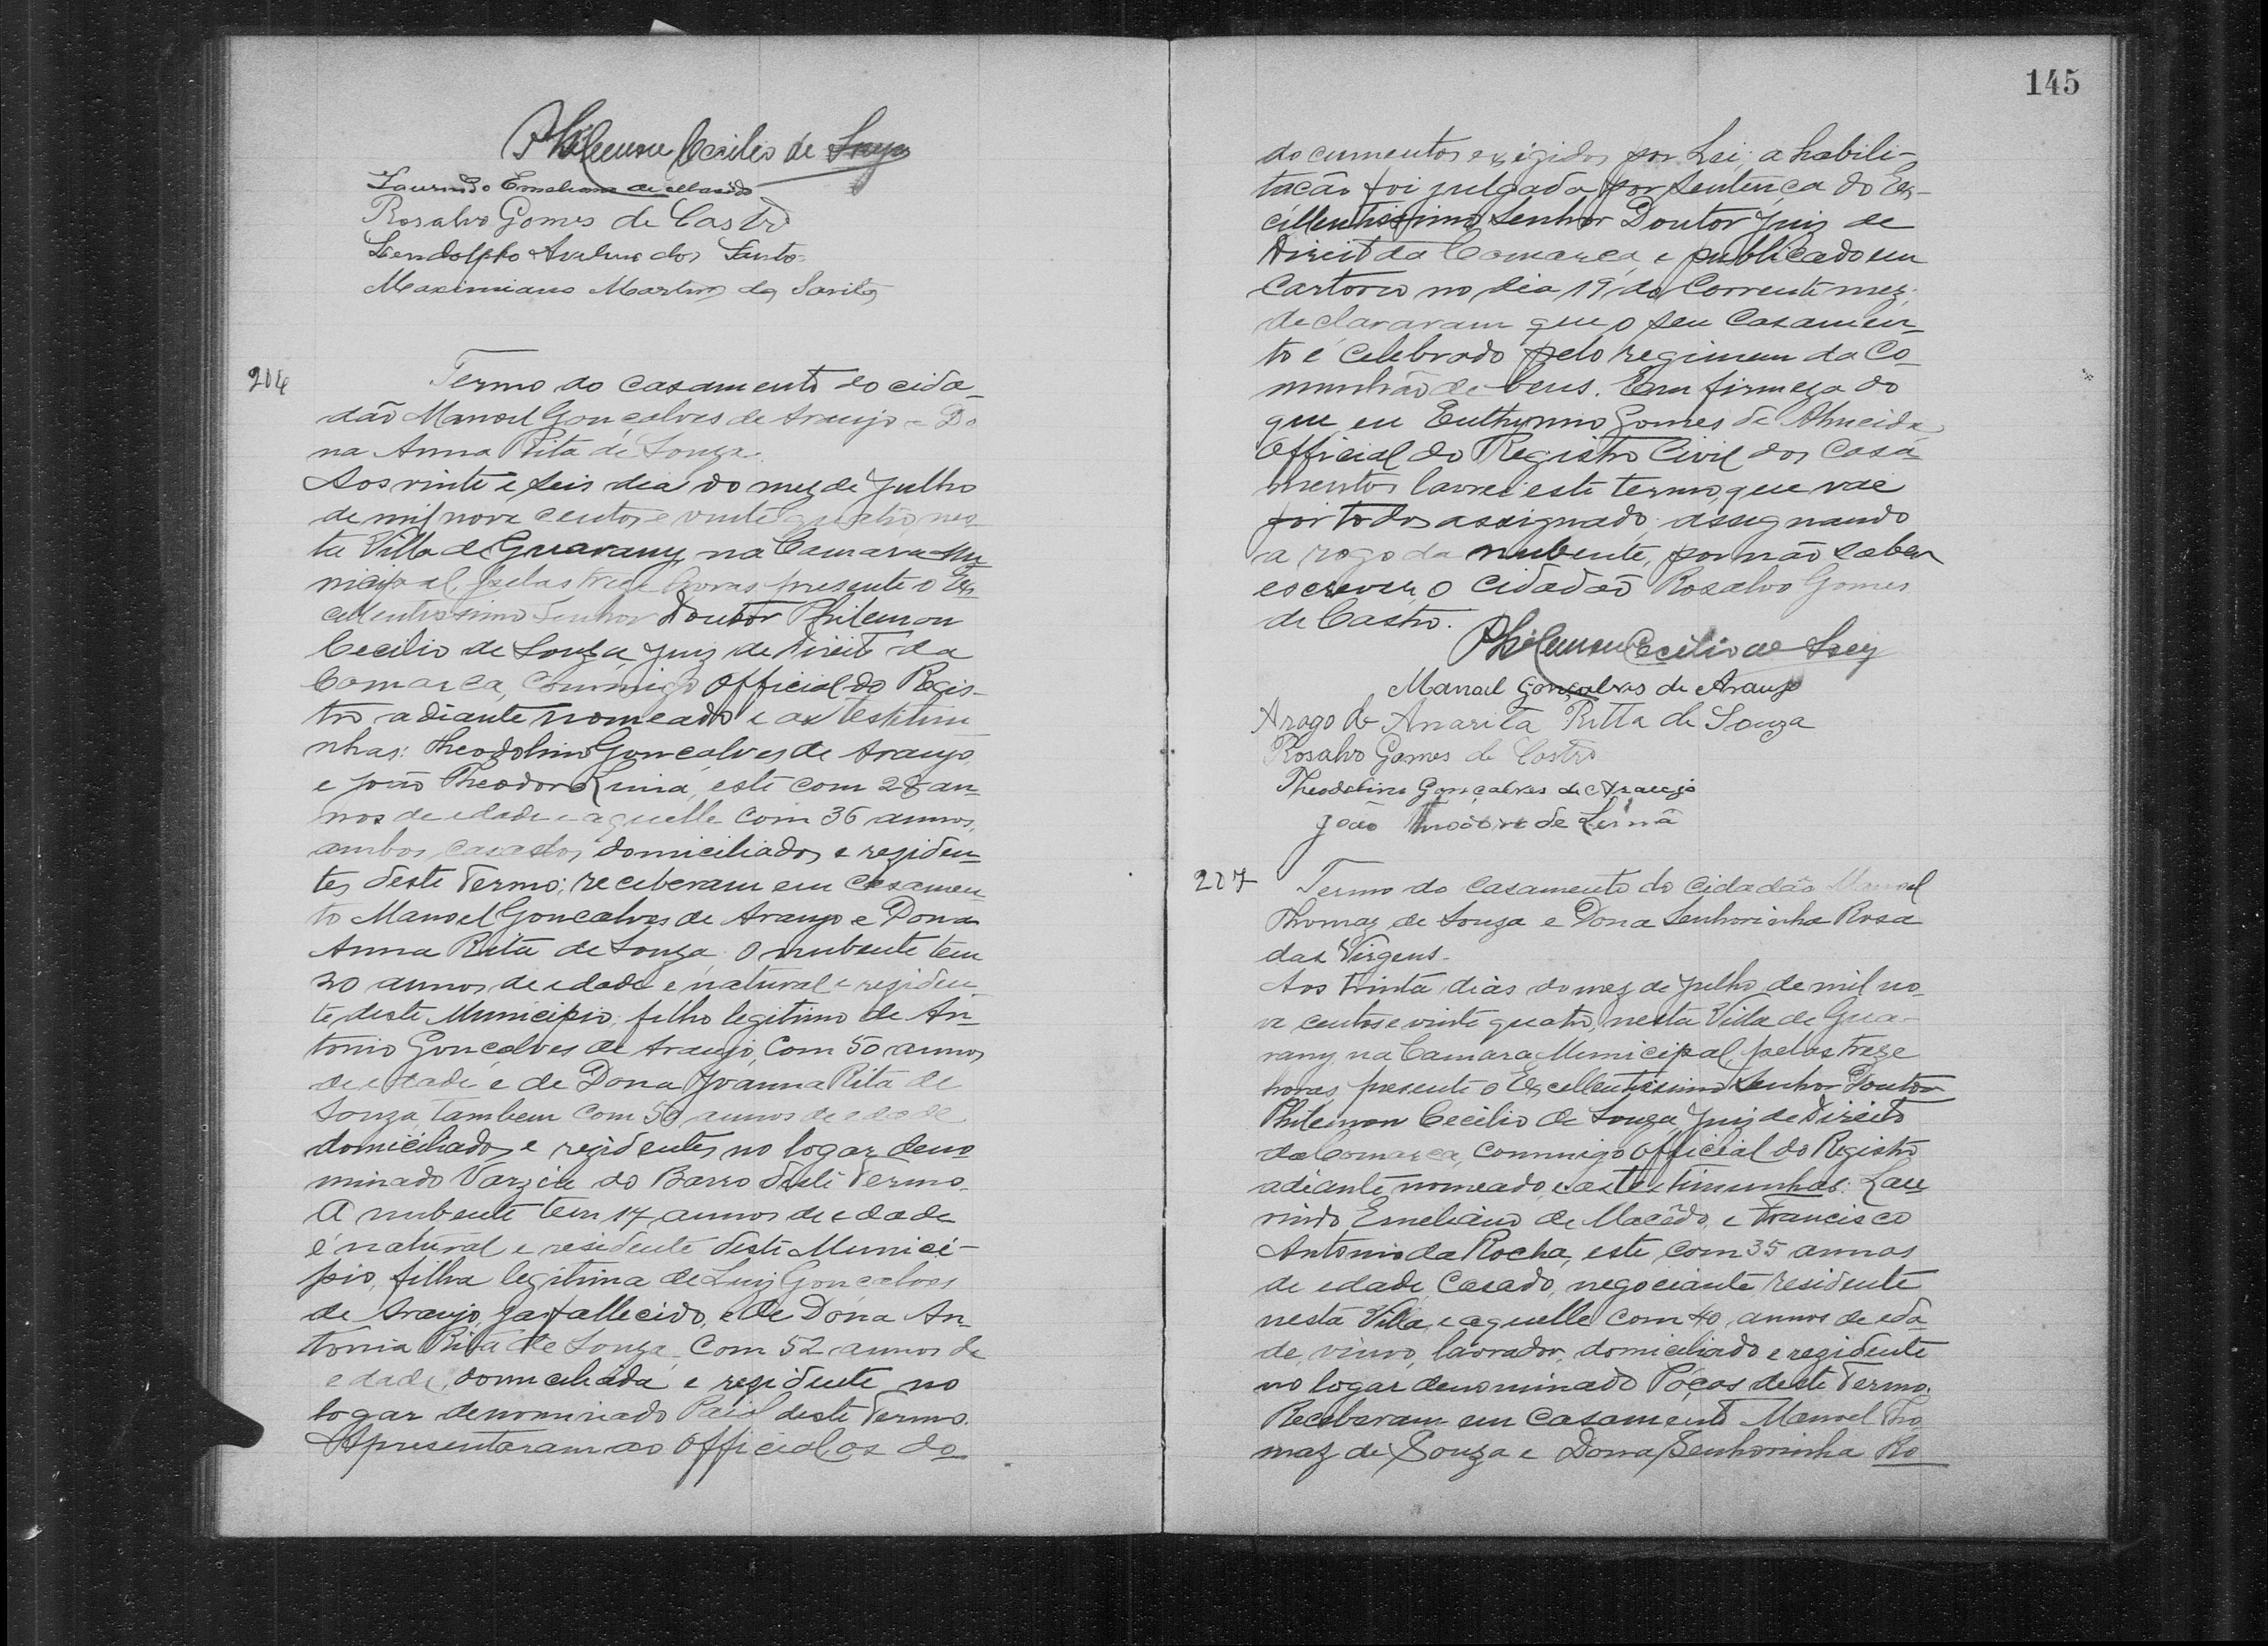 Philemon Cecilio de Souza
Laurindo Emeliano de Macêdo
Rosalvo Gomes de Castro
Lendolpho Avelino dos Santos
Maximiano Martins dos Santos
204
Termo do casamento do cida-
dão Manoel Gonçalves de Araujo e Do
na Anna Rita de Souza.
Aos vinte e seis dia do mez de Julho
de mil nove centos e vinte quatro, nes-
ta Villa de Guarany, na Camara Mu
nicipal, pelas treze horas presente o Ex-
cellentissimo Senhor Doutor Philemon
Cecilio de Souza, Juiz de Direito da
Comarca, commigo Official do Regis-
tro adiante nomeado e as testimu
nhas: Theodolino Gonçalves de Araujo,
e João Theodoro Lima, este com 28 an-
nos de edade e aquelle com 36 annos,
ambos, casados, domiciliados e reziden-
tes deste Termo; receberam em casamen-
to Manoel Goncalves de Araujo e Dona
Anna Rita de Souza. O nubente tem
20 annos de edade é natural e residen-
te deste Municipio, filho legitimo de An-
tonio Gonçalves de Araujo, com 50 annos
de edade, e de Dona Joanna Rita de
Souza, tambem com 50 annos de edade
domiciliados e rezidentes no logar deno
minado Varzea do Barro deste Termo.
A nubente tem 17 annos de edade
é natural e residente deste Munici-
pio, filha legitima de Luiz Gonçalves
de Araujo, ja fallecido, e de Dona An-
tonia Rita de Souza, com 52 annos de
edade, domiciliada e rezidente no
logar denominado Paiol deste Termo.
Apresentaram ao Official os do-
145
documentos exigidos por Lei; a habili-
tacão foi julgada por sentença do Ex-
cellentissimo Senhor Doutor Juiz de
Direito da Comarca, e publicado em
Cartorio no dia 19 do Corrente mez;
declararam que o seu Casamen-
to é Celebrado pelo regimem da Co-
munhão de bens. Em firmeza do
que eu Euthymio Gomes de Almeida
Official do Registro Civil dos Casa-
mentos lavrei este termo, que vae
por todos assignado, assignando
a rogo da nubente, por não saber
escrever, o cidadão Rosalvo Gomes
de Castro.
Philemon Cecilio de Souza
Manoel Gonçalves de Araujo
Arogo de Anarita Ritta de Souza
Rosalvo Gomes de Castro
Theodolino Gonçalves de Araujo
João Theodoro de Lima
207
Termo do casamento do cidadão Manoel
Thomaz de Souza e Dona Senhorinha Rosa
das Virgens.
Aos trinta dias do mez de julho de mil no-
ve centos e vinte quatro, nesta Villa de Gua-
rany, na Camara Municipal, pelas treze
horas, presente o Excellentissimo Senhor Doutor
Philemon Cecilio de Souza, Juiz de Direito
da Comarca, commigo Official do Registro
adiante nomeado, e as testimunhas: Lau
rindo Emeliano de Macêdo, e Francisco
Antonio da Rocha, este com 35 annos
de edade, Casado, negociante residente
nesta Villa, e aquelle com 40 annos de eda-
de, viuvo, lavrador, domiciliado e rezidente
no logar denominado Poços deste Termo.
Receberam em casamento Manoel Tho
maz de Souza e Dona Senhorinha Ro